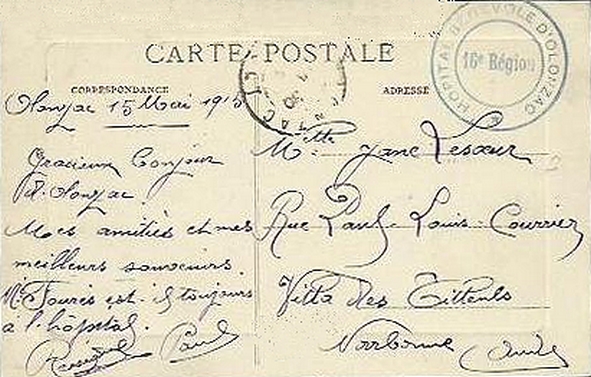 CARTE POSTALE
HÔPITAL BÉNÉVOLE D'OLONZAC
16e Région
CORRESPONDANCE
Olonzac 15 Mai 1915
Gracieux bonjour
d'Olonzac.
Mes amitiés et mes
meilleurs souvenirs.
Mr Fourès est-il toujours
a l'hôpital.
Paul
ADRESSE
Melle Jane Lesœur
Rue Paul-Louis-Courrier
Villa des Tilleuls
Narbonne (Aude)